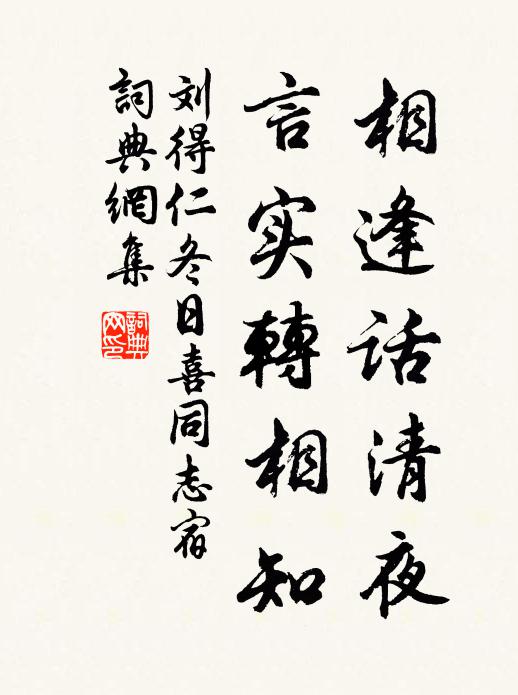 相逢话清夜
言实轉相知
刘得仁冬日喜同志宿
詞典網集
詞典网印